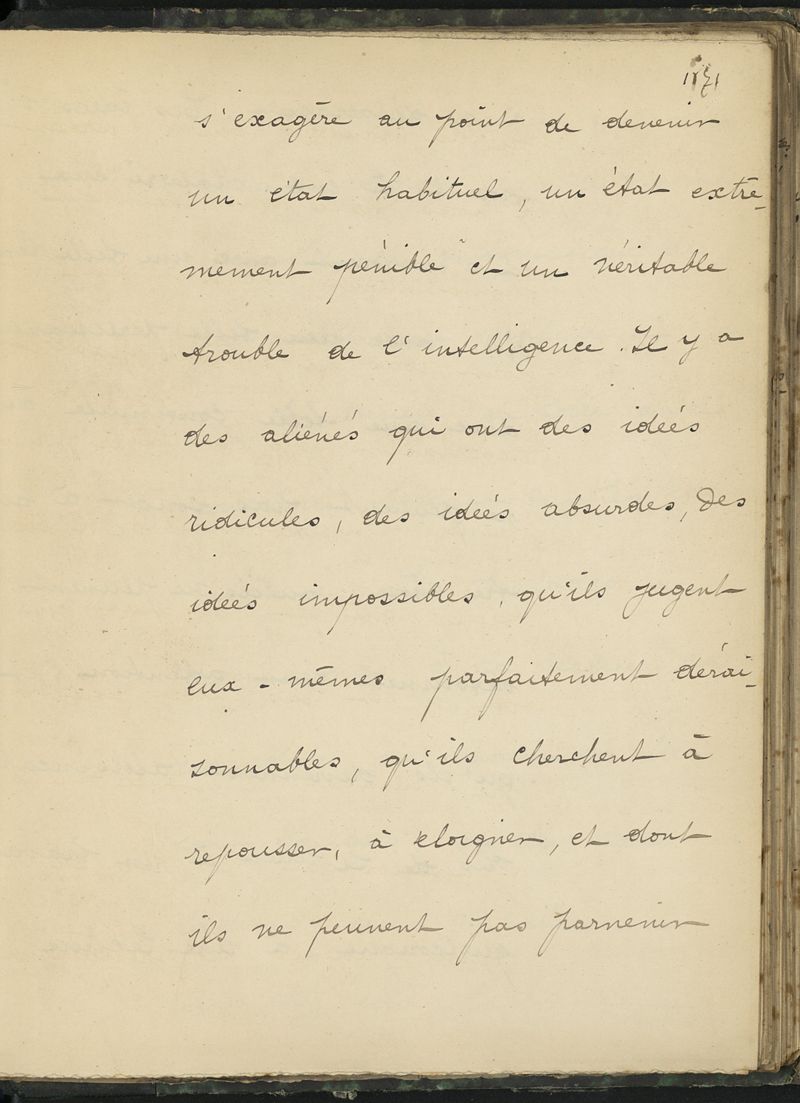 s'exagère au point de devenir
un état habituel, un état extrê-
mement pénible et un véritable
trouble de l'intelligence. Il y a
des aliénés qui ont des idées
ridicules, des idées absurdes, des
idées impossibles, qu'ils jugent
eux-mêmes parfaitement dérai-
sonnables, qu'ils cherchent à
repousser, à éloigner, et dont
ils ne peuvent pas parvenir